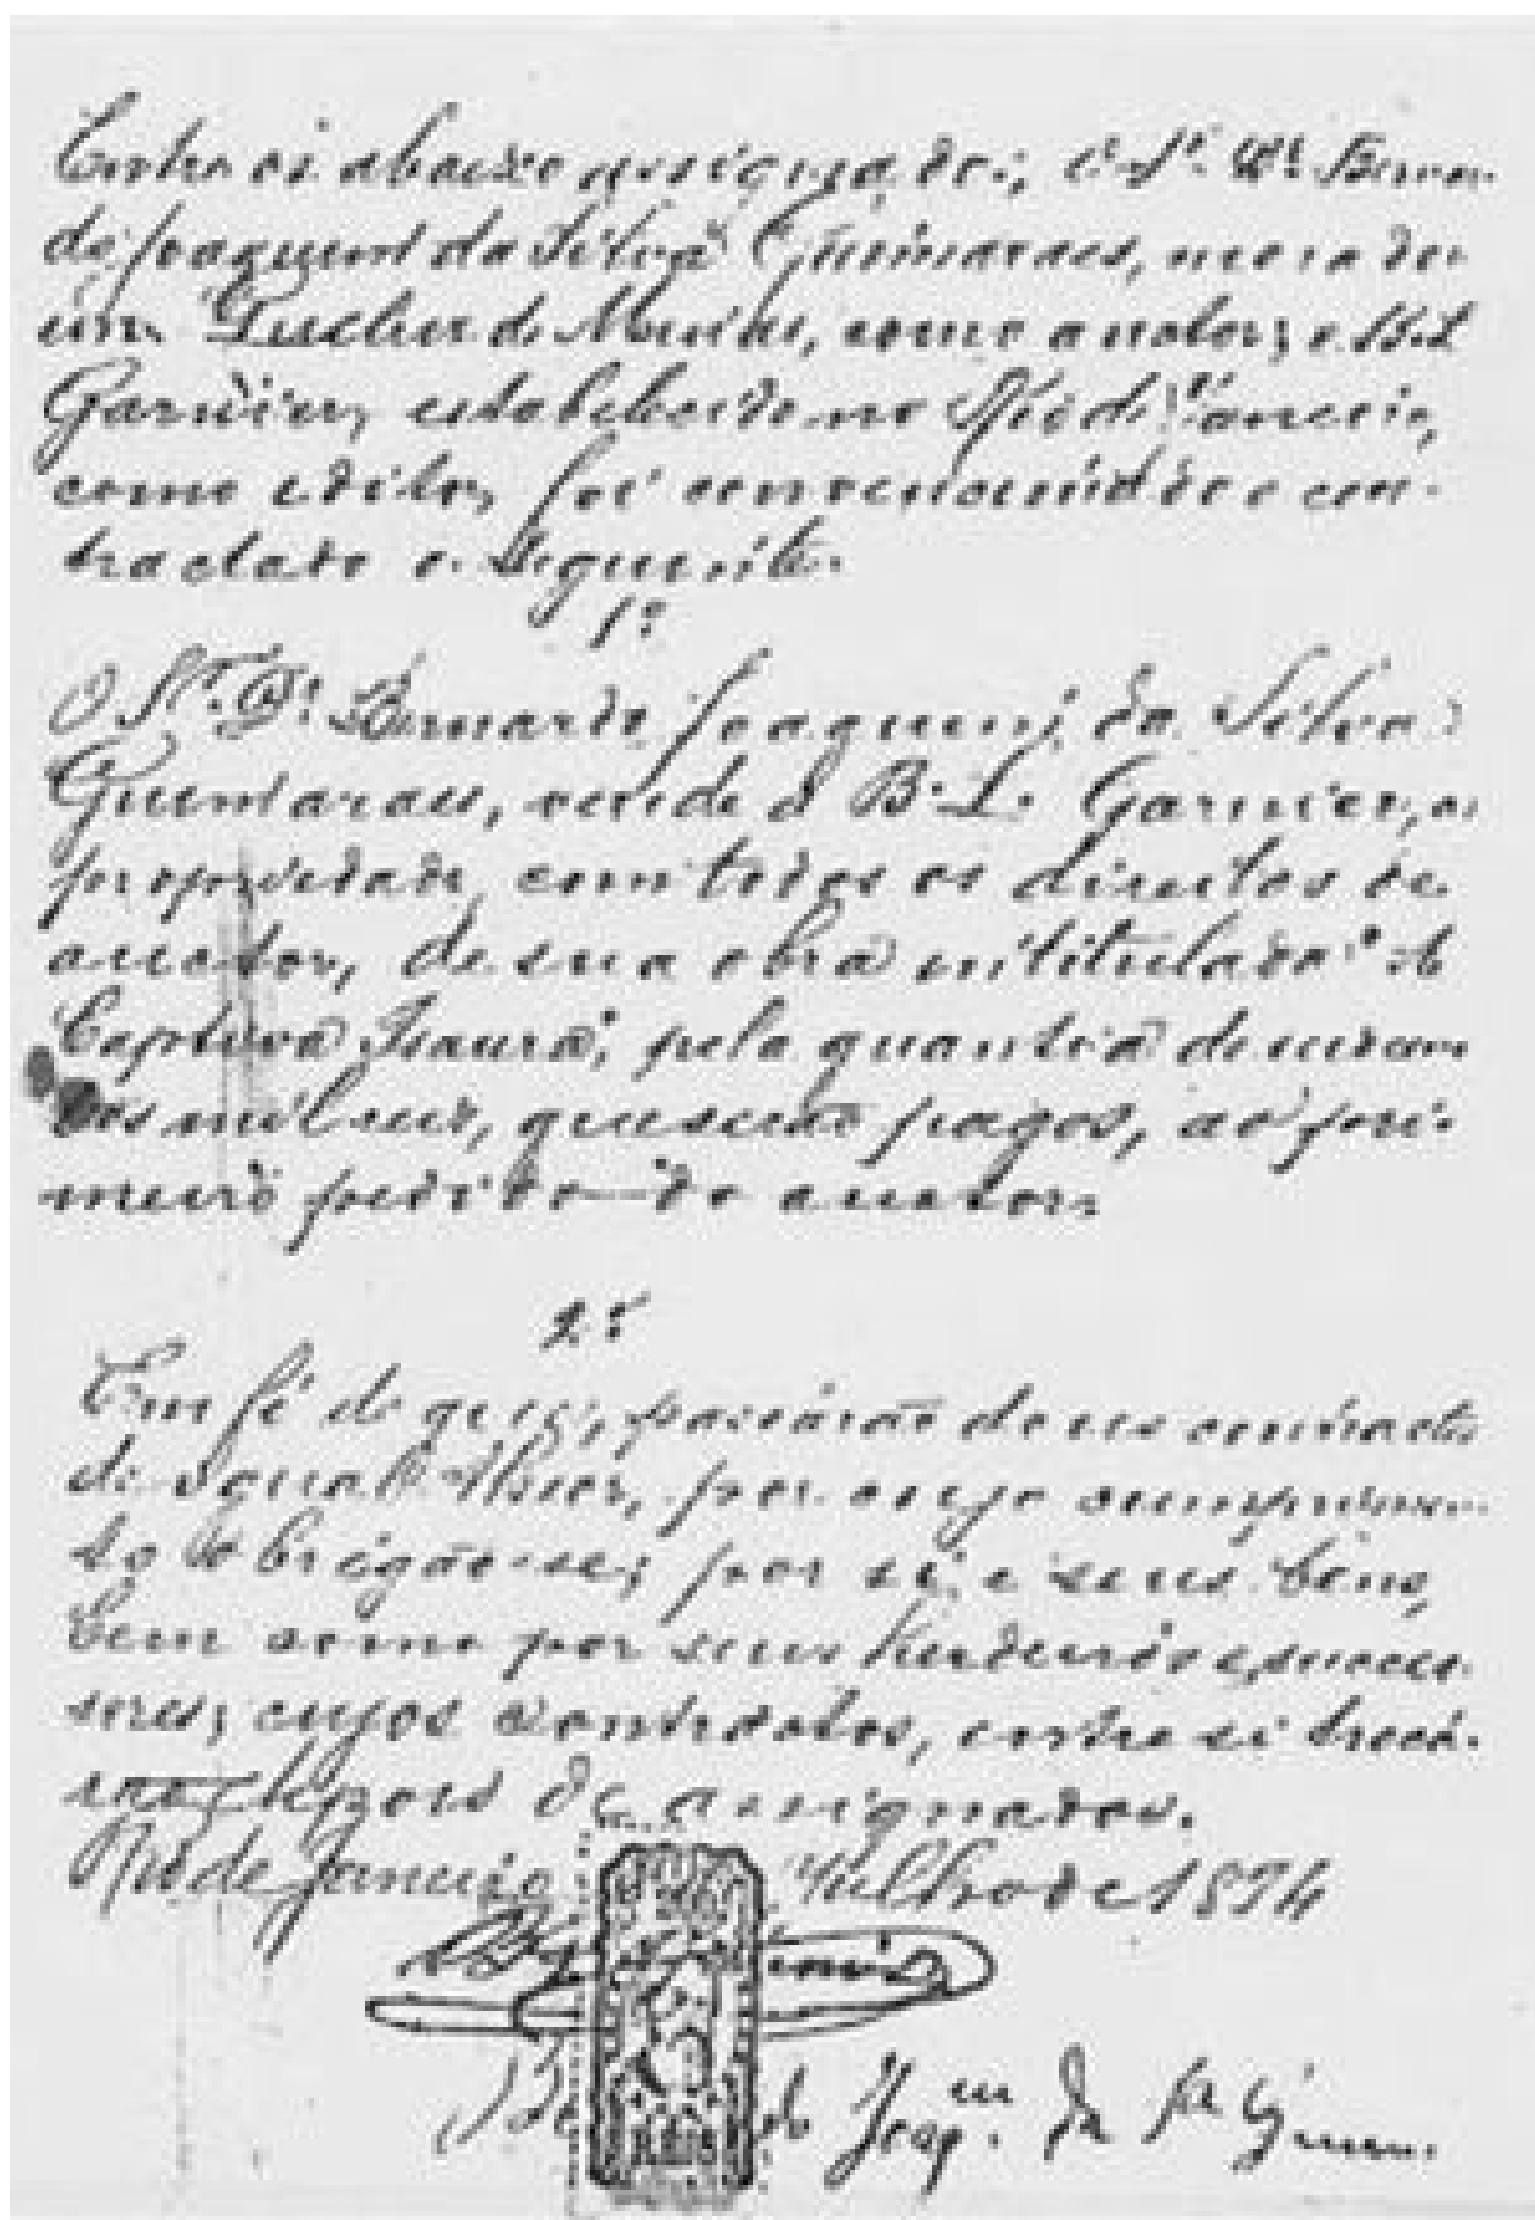 Entre os abaixo assignados; o Sr. Dr. Bernar-
do Joaquim da Silva Guimarães, morador
em de Minas, como auctor; e B. L.
Garnier, estabelecido no Rio de Janeiro,
como editor, foi convencionado e con-
tractado o seguinte.
1º
O Sr. Dr. Bernardo Joaquim da Silva
Guimarães, vende á B. L. Garnier, a
propriedade, com todos os direitos de
auctor, de sua obra intitulada: A
Captiva Isaura; pela quantia de
mil reis, que serão pagos, ao pri-
meiro pedido do auctor.
2º
Em fé do que, passárão dous contractos
de igual theor, por cujo cumprimen-
to obrigão-se, por si e seus bens,
bem como por seus herdeiros e succes-
sores; cujos contractos, entre si trocá-
rão depois de assignados.
Rio de Janeiro Julho de 1874
Joaqm. da Sa Guimm.